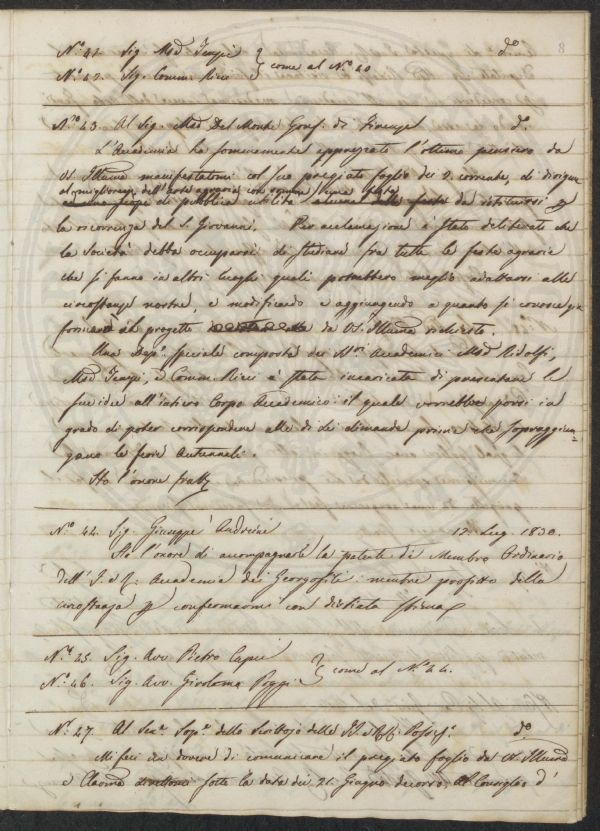 8
N.º 41. Sig. Mad. Tempi d.º
N.º 42. Sig. Comm. Ricci } come al N.º 40
N.º 43. Al Sig. Mad. Del Monte Gonf. di Firenze d.º
L'Accademia ha sommamente apprezzato l'ottimo pensiero da
VS. Illma manifestatomi col suo pregiato foglio de' 2. corrente, di dirigere
al miglioram. dell'arte agraria con
di pubblica utilità da istituirsi p
la ricorrenza del S. Giovanni. Per acclamazione è stato deliberato che
la Società debba occuparsi di studiare fra tutte le feste agrarie
che si fanno in altri luoghi quali potrebbero meglio adattarsi alle
circostanze nostre, e modificando e aggiungendo a quanto si conosce già
formare il progetto da VS. Illma richiesto.
Una Dep.e speciale composta dei N.ri Accademici Mad. Ridolfi,
Mad. Tempi, e Comm. Ricci è stata incaricata di presentare le
sue idee all'intiero Corpo Accademico il quale vorrebbe porsi in
grado di poter corrispondere alle di Lei dimande prima che sopraggiun-
gano le ferie Autunnali.
Ho l'onore
N.º 44. Sig. Giuseppe Andreini 12. Lug. 1830.
Ho l'onore di accompagnarle la patente di Membro Ordinario
dell'I. e R. Accademia dei Georgofili mentre profitto della
circostanza p confermarmi con distinta stima
N.º 45. Sig. Avv. Pietro Capei
N.º 46. Sig. Avv. Girolamo Poggi } come al N.º 44.
N.º 47. Al Sen. Sop. dello Scrittojo delle II. e RR. Possess. d.º
Mi feci un dovere di comunicare il pregiato foglio da VS. Illma
e Clarma direttomi sotto la data dei 21. Giugno decorso, al Consiglio d'